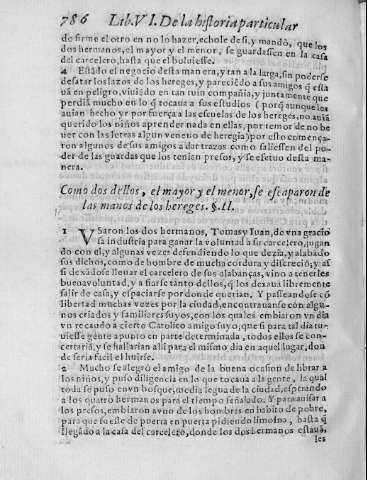 786 Lib. VI. De la historia particular
de firme el otro en no lo hazer, echole de si, y mandò, que los
dos hermanos, el mayor y el menor, se guardassen en la casa
del carcelero, hasta que el boluiesse.
4 Estãdo el negocio desta manera, y tan a la larga, sin poderse
desatar los lazos de los hereges, y pareciẽdo a sus amigos q̃ està
uã en peligro, viuiẽdo en tan ruin compañia, y juntamente que
perdiã mucho en lo q̃ tocaua a sus estudios (porq̃ aunque los
auian hecho yr por fuerça a las escuelas de los hereges, no auiã
querido los niños aprender nada en ellas, por temor de no be
uer con las letras algun veneno de heregia) por esto comença-
ron algunos de sus amigos a dar trazas como saliessen del po-
der de las guardas que los tenian presos, y se efetuo desta ma
nera.
Como dos dellos, el mayor y el menor, se escaparon de
las manos de los hereges. §. II.
1 Vsaron los dos hermanos, Tomas y Iuan, de vna gracio
sa industria para ganar la voluntad a su carcelero, jugan
do con el, y algunas vezes defendiendo lo que dezia, y alabado
sus dichos, como de hombre de mucha cordura y discreciõ, y a
si dexãdose llenar el carcelero de sus alabanças, vino a tenerles
buena voluntad, y a fiarse tanto dellos, q̃ los dexaua libremente
salir de casa, y espaciarse por donde querian. Y passeandose cõ
libertad muchas vezes por la ciudad, encontrauanse con algu-
nos criados y familiares suyos, con los quales embiaron vn dia
vn recaudo a cierto Catolico amigo suyo, que si para tal dia tu-
uiesse gente a punto en parte determinada, todos ellos se con-
certariã, y se hallarian alli para el mismo dia en aquel lugar, don
de seria facil el huirse.
2 Mucho se alegrò el amigo de la buena ocasion de librar a
los niños, y puso diligencia en lo que tocaua a la gente, la qual
toda se puso en vn bosque, media legua de la ciudad, esperando
a los quatro hermanos para el tiempo señalado. Y para auisar a
los presos, embiaron a vno de los hombres en habito de pobre,
para que se fuesse de puerta en puerta pidiendo limosna, hasta q̃
llegãdo a la casa del carcelero, donde los dos hermanos estauã,
les